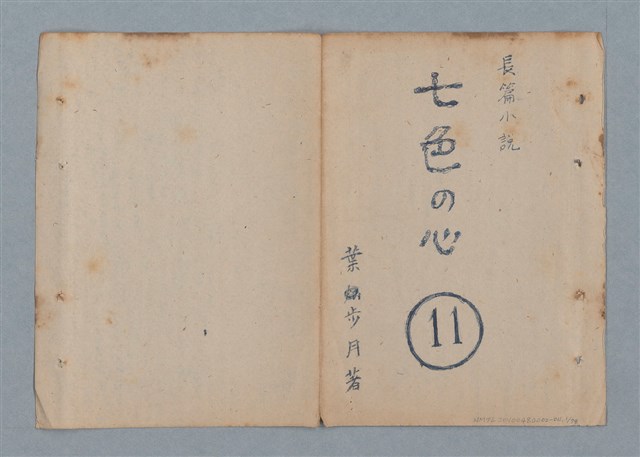 長篇小說
七色の心
11
葉步月著